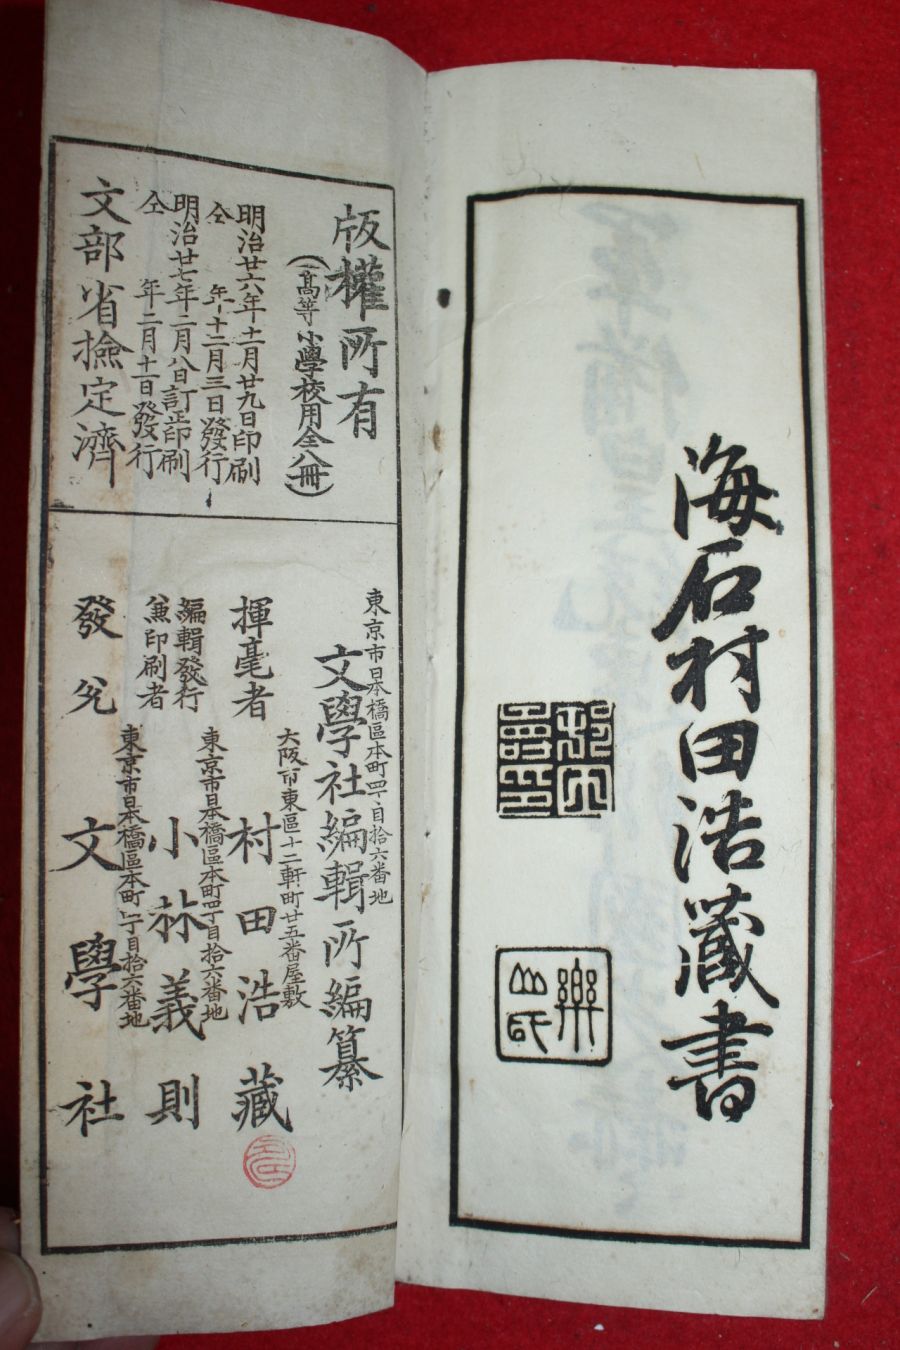 海石村田浩蔵書
版權所有
(高等小學校用全八冊)
明治廿六年十一月廿九日印刷
仝年十二月三日發行
明治廿七年二月八日訂正印刷
仝年二月十一日發行
文部省撿定濟
東京市日本橋區本町四丁目拾六番地
文學社編輯所編纂
大阪市東區十二軒町廿五番屋敷
揮毫者 村田浩藏
東京市日本橋區本町四丁目拾六番地
編輯發行兼印刷者 小林義則
東京市日本橋區本町四丁目拾六番地
發兌 文學社